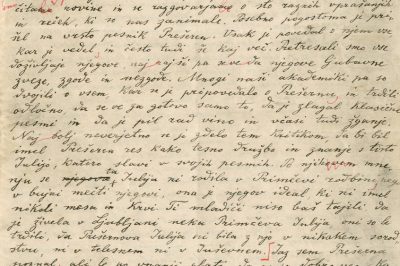 čitana novine in se razgovarjano o sto raznih vprašanjih
in rečeh, ki so nas zanimale. Posebno pogostoma je pri-
šel na vrsto pesnik Prešeren. Vsak je povedal o njem vse
kar je vedel, in često tudi še kaj več. Pretresali smo vse
doživljaje njegove, najrajši pa seveda njegove ljubavne
zveze, zgode in nezgode. Mnogi naši akademiki pa so
dvojili o vsem, kar se je pripovedalo o Prešernu, in trdili
odločno, da se ve za gotovo samo to, da je zlagal klasične
pesmi in da je pil rad vino in včasi tudi žganje.
Naj bolj neverjetno se je zdelo tem kritikom, da bi bil
imel Prešeren res kako tesno družbo in znanje s tisto
Julijo, katero slavi v svojih pesmih. Po njihovem mne-
nju se ta Julija ni rodila v Primičevi rodbini, nego
v bujni mešti njegovi, ona je njegov ideal ki ni imel
nikoli mesa in krvi. Ti mladiči niso baš tajili, da
je živela v Ljubljani neka Primičeva Julija, oni so le
trdili, da Prešernova Julija ni bila z njo v nikakem sorod-
stvu, ni v telesnem ni v duševnem. Jaz sem Prešerna
poznal, ali